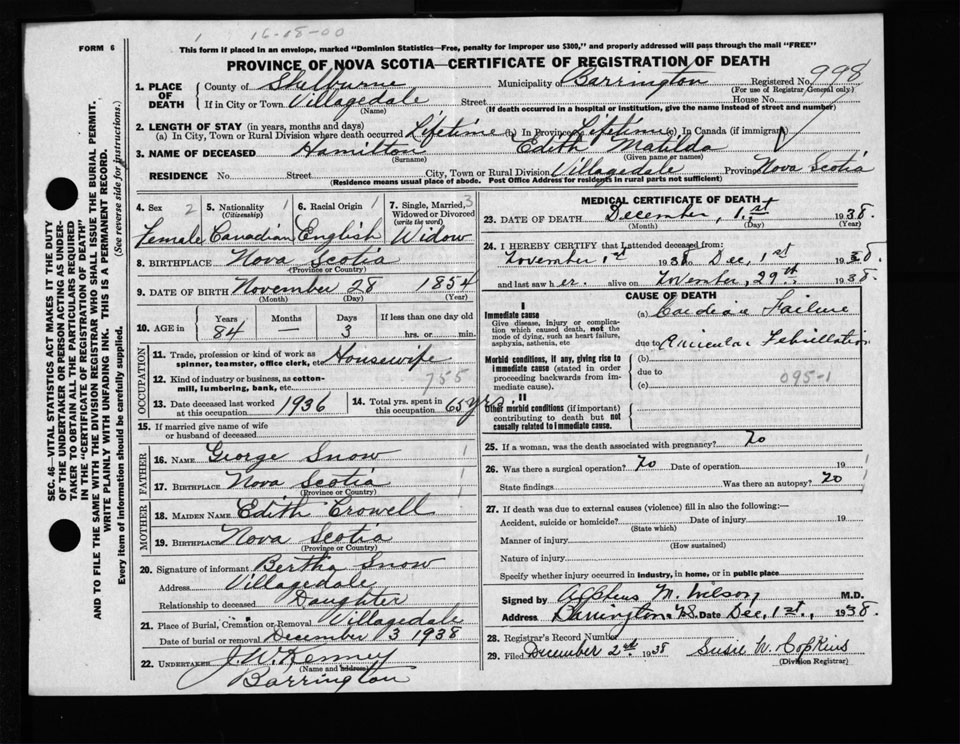 16-18-00
FORM 6
This form if placed in an envelope, marked "Dominion Statistics—Free, penalty for improper use $300," and properly addressed will pass through the mail "FREE"
PROVINCE OF NOVA SCOTIA—CERTIFICATE OF REGISTRATION OF DEATH
1. PLACE OF DEATH County of Shelburne Municipality of Barrington Registered No. 998
(For use of Registrar General only)
If in City or Town Villagedale Street House No.
(Name) (If death occurred in a hospital or institution, give the name instead of street and number)
2. LENGTH OF STAY (in years, months and days)
(a) In City, Town or Rural Division where death occurred Lifetime (b) In Province Lifetime (c) In Canada (if immigrant)
3. NAME OF DECEASED Hamilton Edith Matilda
(Surname) (Given name or names)
RESIDENCE No. Street City, Town or Rural Division Villagedale Province Nova Scotia
(Residence means usual place of abode. Post Office Address for residents in rural parts not sufficient)
SEC. 46—VITAL STATISTICS ACT MAKES IT THE DUTY
OF THE UNDERTAKER OR PERSON ACTING AS UNDER-
TAKER TO OBTAIN ALL THE PARTICULARS REQUIRED
IN THE "CERTIFICATE OF REGISTRATION OF DEATH"
AND TO FILE THE SAME WITH THE DIVISION REGISTRAR WHO SHALL ISSUE THE BURIAL PERMIT.
WRITE PLAINLY WITH UNFADING INK. THIS IS A PERMANENT RECORD.
Every item of information should be carefully supplied. (See reverse side for instructions.)
4. Sex 2 5. Nationality 1 6. Racial Origin 1 7. Single, Married, 3
(Citizenship) Widowed or Divorced
(write the word)
Female Canadian English Widow
8. BIRTHPLACE Nova Scotia
(Province or Country)
9. DATE OF BIRTH November 28 1854
(Month) (Day) (Year)
10. AGE in Years Months Days If less than one day old
84 — 3 hrs. or min.
OCCUPATION
11. Trade, profession or kind of work as
spinner, teamster, office clerk, etc Housewife
12. Kind of industry or business, as cotton-
mill, lumbering, bank, etc. 755
13. Date deceased last worked
at this occupation 1936
14. Total yrs. spent in
this occupation 65 yrs.
15. If married give name of wife
or husband of deceased
FATHER
16. NAME George Snow 1
17. BIRTHPLACE Nova Scotia 1
(Province or Country)
MOTHER
18. MAIDEN NAME Edith Crowell
19. BIRTHPLACE Nova Scotia
(Province or Country)
20. Signature of informant Bertha Snow
Address Villagedale
Relationship to deceased Daughter
21. Place of Burial, Cremation or Removal Villagedale
Date of burial or removal December 3 1938
22. UNDERTAKER J. W. Kenney
(Name and address)
Barrington
MEDICAL CERTIFICATE OF DEATH
23. DATE OF DEATH December, 1st 1938.
(Month) (Day) (Year)
24. I HEREBY CERTIFY that I attended deceased from:
November 1st 1938 to Dec, 1st 1938
and last saw h er. alive on November, 29th 1938
CAUSE OF DEATH
I
Immediate cause
Give disease, injury or complica-
tion which caused death, not the
mode of dying, such as heart failure,
asphyxia, asthenia, etc
(a) Cardiac Failure
due to Auricular Febrillation
Morbid conditions, if any, giving rise to
immediate cause (stated in order
proceeding backwards from im-
mediate cause).
(b)
due to
(c) 095-1
II
Other morbid conditions (if important)
contributing to death but not
causally related to immediate cause.
25. If a woman, was the death associated with pregnancy? No
26. Was there a surgical operation? No Date of operation 19 1
State findings Was there an autopsy? No 1
27. If death was due to external causes (violence) fill in also the following:—
Accident, suicide or homicide? Date of injury 19
(State which)
Manner of injury
(How sustained)
Nature of injury
Specify whether injury occurred in industry, in home, or in public place
Signed by Alpheus M. Wilson M.D.
Address Barrington, N.S. Date Dec, 1st., 1938.
28. Registrar's Record Number
29. Filed December 2nd 1938 Susie W. Hopkins
(Division Registrar)